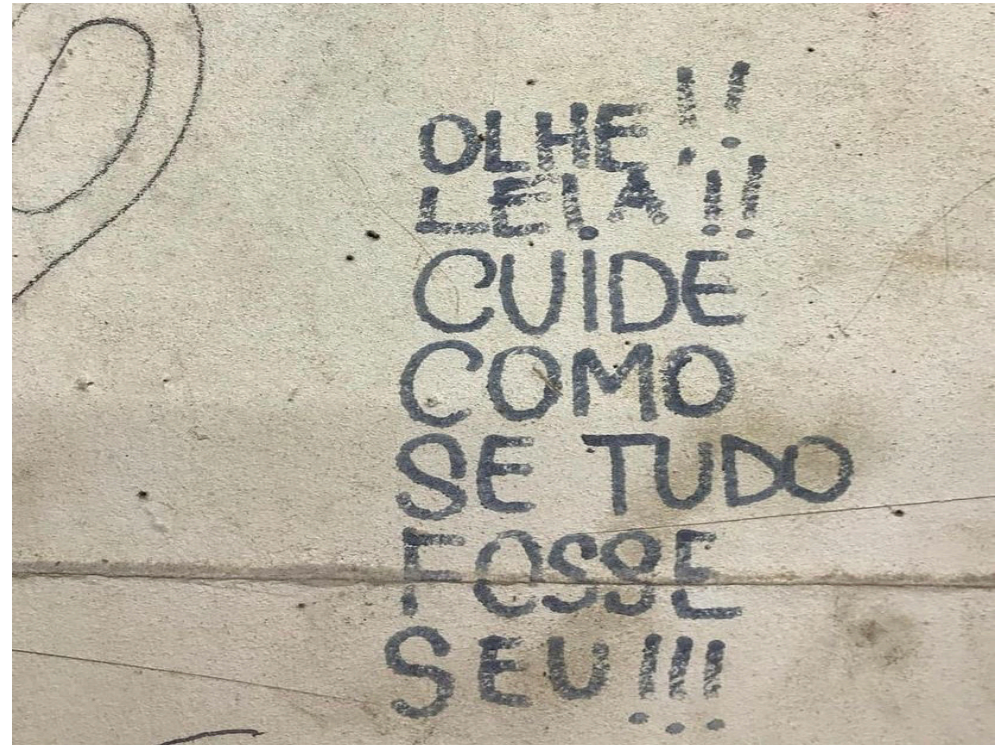 OLHE!!
LEIA!!
CUIDE
COMO
SE TUDO
FOSSE
SEU!!!